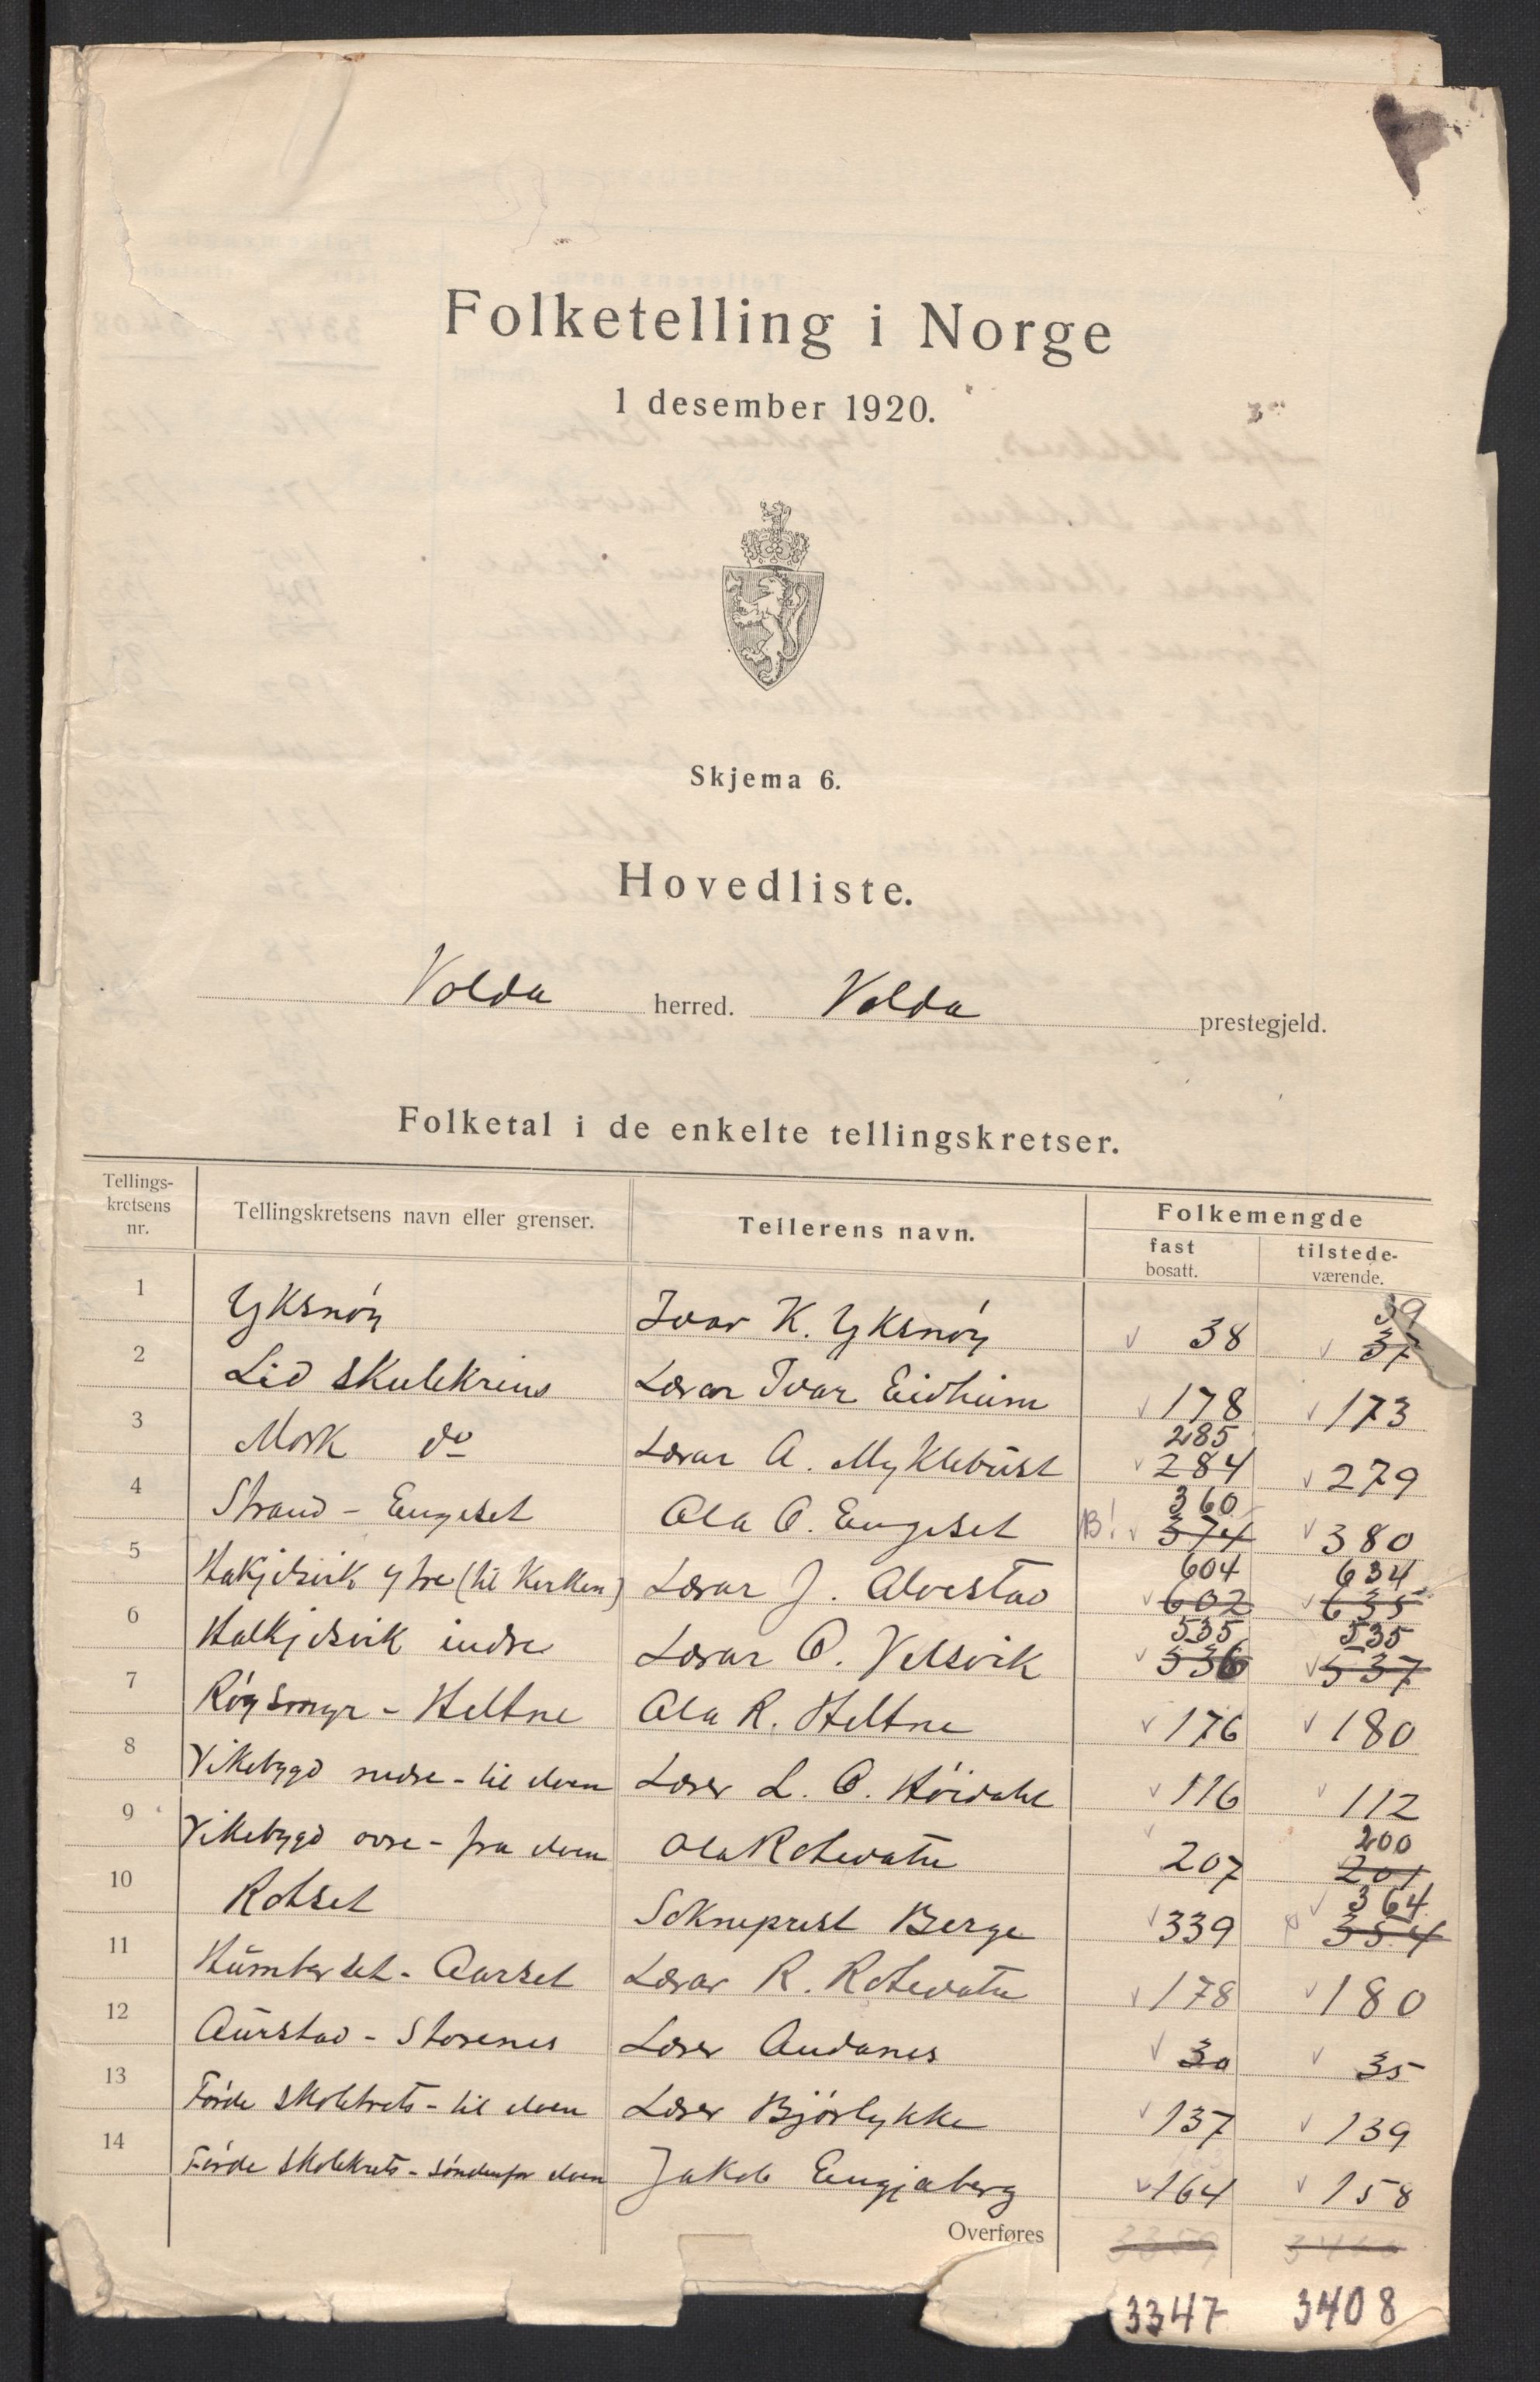 Folketelling i Norge
1 desember 1920.
Skjema 6.
Hovedliste.
Volda herred. Volda prestegjeld.
Folketal i de enkelte tellingskretser.
Tellings-kretsens nr. Tellingskretsens navn eller grenser. Tellerens navn. Folkemengde
fast bosatt. tilstede-værende.
39
1 Yksnöy Ivar K. Yksnöy 38 37
2 Lid skulekrins Lærar Ivar Eidheim 178 173
285
3 Mork do Lærar A. Myklebust 284 279
360
4 Strand - Engeset Ola O. Engeset B! 374 380
604 634
5 Halkjelsvik ytre (til Kirken) Lærar J. Alvestad 602 635
535 535
6 Halkjelsvik indre Lærar O. Velsvik 536 537
7 Röysmyr - Heltne Ola R. Heltne 176 180
8 Vikebygd nedre - til elven Lærer L. O. Höidahl 116 112
200
9 Vikebygd øvre - fra elven Ola Rotevatn 207 201
364
10 Rotset Sokneprest Berge 339 354
11 Humberset - Aarset Lærar R. Rotevatn 178 180
12 Aurstad - Storenes Lærer Audanes 30 35
13 Förde skolekrets - til elven Lærer Björlykke 137 139
14 Förde skolekrets - söndenfor elven Jakob Engjaberg 164 158
Overføres 3359
3347 3408